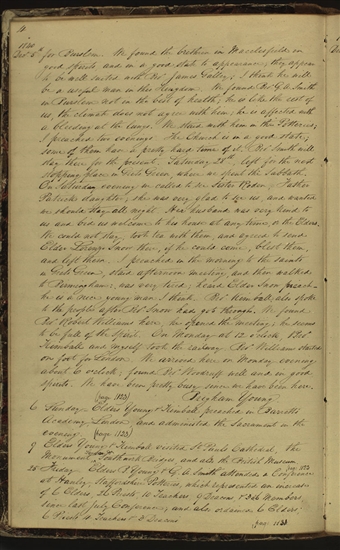 1840
Dec. 5th for Burslem. We found the brethren in Macclesfield in
good spirits and in a good state to appearance; they appear
to be well suited with Bro. James Galley; I think he will
be a useful man in this Kingdom. We found Bro. G. A. Smith
in Burslem not in the best of health; he is like the rest of
us, the climate does not agree with him; he is affected with
a bleeding at the lungs. We staid with him in the Potteries,
I preached two evenings. The Church is in a good state,
some of them have a pretty hard time of it. Bro. Smith will
stay there for the present. Saturday 28th left for the next
stopping place in Greets Green, where we spent the Sabbath.
On Saturday evening we called to see Sister Rader, Father
Patrick's daughter; she was very glad to see us, and wanted
we should stay all night. Her husband was very kind to
us and bid us welcome to his house at any time, or the Elders.
We could not stay, took tea with them, and agreed to send
Elder Lorenzo Snow there, if he could come, blest them,
and left them. I preached in the morning to the saints
in Greets Green, staid afternoon meeting, and then walked
to Birmingham; was very tired; heard Elder Snow preach
he is a nice young man I think. Bro. Kimball also spoke
to the people after Bro. Snow had got through. We found
Bro. Robert Williams here; he opened the meeting; he seems
to be full of the spirit. On Monday at 12 o'clock, Bro.
Kimball and myself took the railway. Bro. Williams started
on foot for London. We arrived here on Monday evening
about 6 o'clock; found Bro. Woodruff well and in good
spirits. We have been pretty busy since we have been here.
Brigham Young.
(page 1123)
6 Sunday. Elders Young & Kimball preached in Barretts
Academy, London, and administered the Sacrament in the
evening. (page 1123)
9 Elders Young & Kimball visited St. Pauls Cathedral, the
Monument, Southwark Bridges, and also the British Museum.
page 1123
25 Friday. Elders B. Young & G. A. Smith attended a Conference
at Hanley, Staffordshire Potteries, which represented an increase
of 6 Elders, 26 Priests, 10 Teachers, 9 Deacons & 134 Members,
since last July Conference; and also ordained 2 Elders,
6 Priests, 4 Teachers & 3 Deacons
page 1133